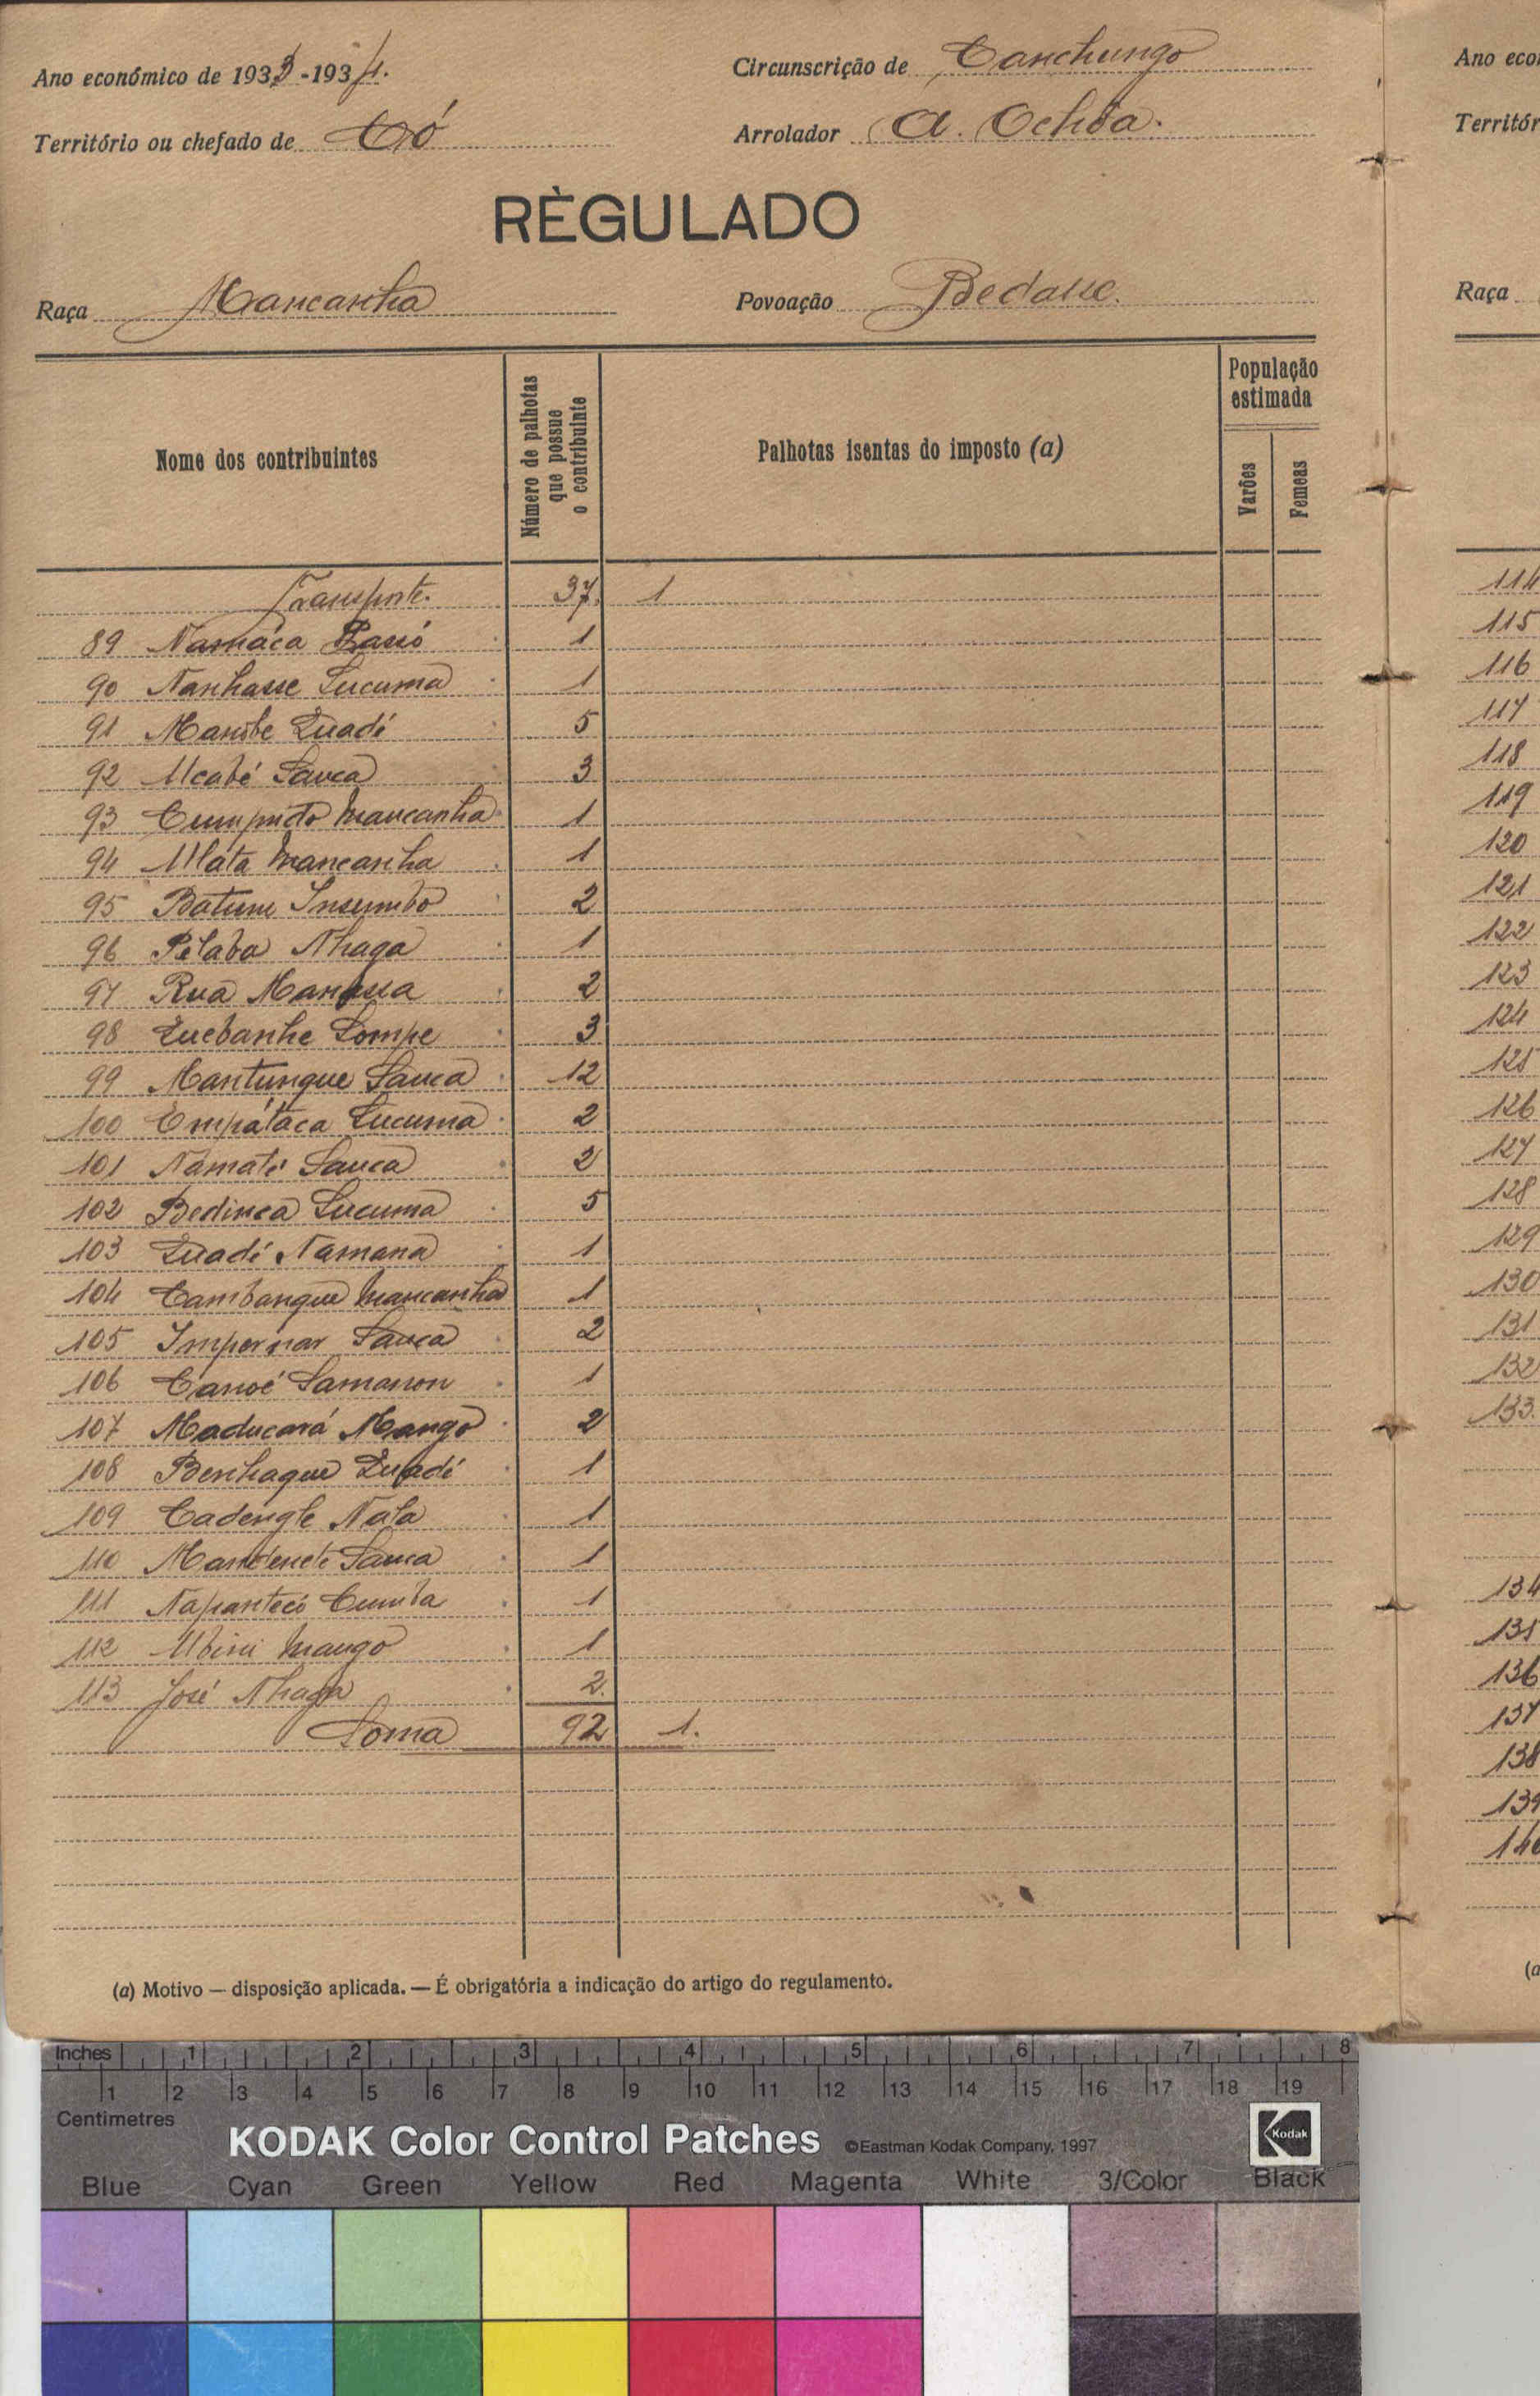 Ano económico de 1933-1934.
Circunscrição de Canchungo
Território ou chefado de Có
Arrolador A. Ochôa.
RÈGULADO
Raça Mancanha
Povoação
Nome dos contribuintes
Número de palhotas que possue o contribuinte
Palhotas isentas do imposto (a)
População estimada
Varões
Femeas
Transporte. 37. 1
89 Namáca 1
90 Nanhasse Lucuma 1
91 Luadi 5
92 Ucabé Sanca 3
93 Cumprido Mancanha 1
94 Ulata Mancanha 1
95 Batum Insumbo 2
96 Pelaba Nhaga 1
97 Rua 2
98 Luebanhe Lompe 3
99 Mantungue Sanca 12
100 Empátaca Lucuma 2
101 Namate Sanca 2
102 Bedinca Lucuma 5
103 Luadi Namana 1
104 Cambangue Mancanha 1
105 Impernar Sanca 2
106 Canoé Samanon 1
107 Maducará Mango 2
108 Benhaque Luadi 1
109 Cadengle Nala 1
110 Sanca 1
111 Cumba 1
112 Mango 1
113 José Nhaga 2.
Soma 92 1.
(a) Motivo — disposição aplicada. — É obrigatória a indicação do artigo do regulamento.
Ano eco
Territór
Raça
114
115
116
117
118
119
120
121
122
123
124
125
126
127
128
129
130
131
132
133.
134
135
136
137
138
139
140
(a
Inches 1 2 3 4 5 6 7 8
1 2 3 4 5 6 7 8 9 10 11 12 13 14 15 16 17 18 19
Centimetres
KODAK Color Control Patches ©Eastman Kodak Company, 1997 Kodak
Blue Cyan Green Yellow Red Magenta White 3/Color Black